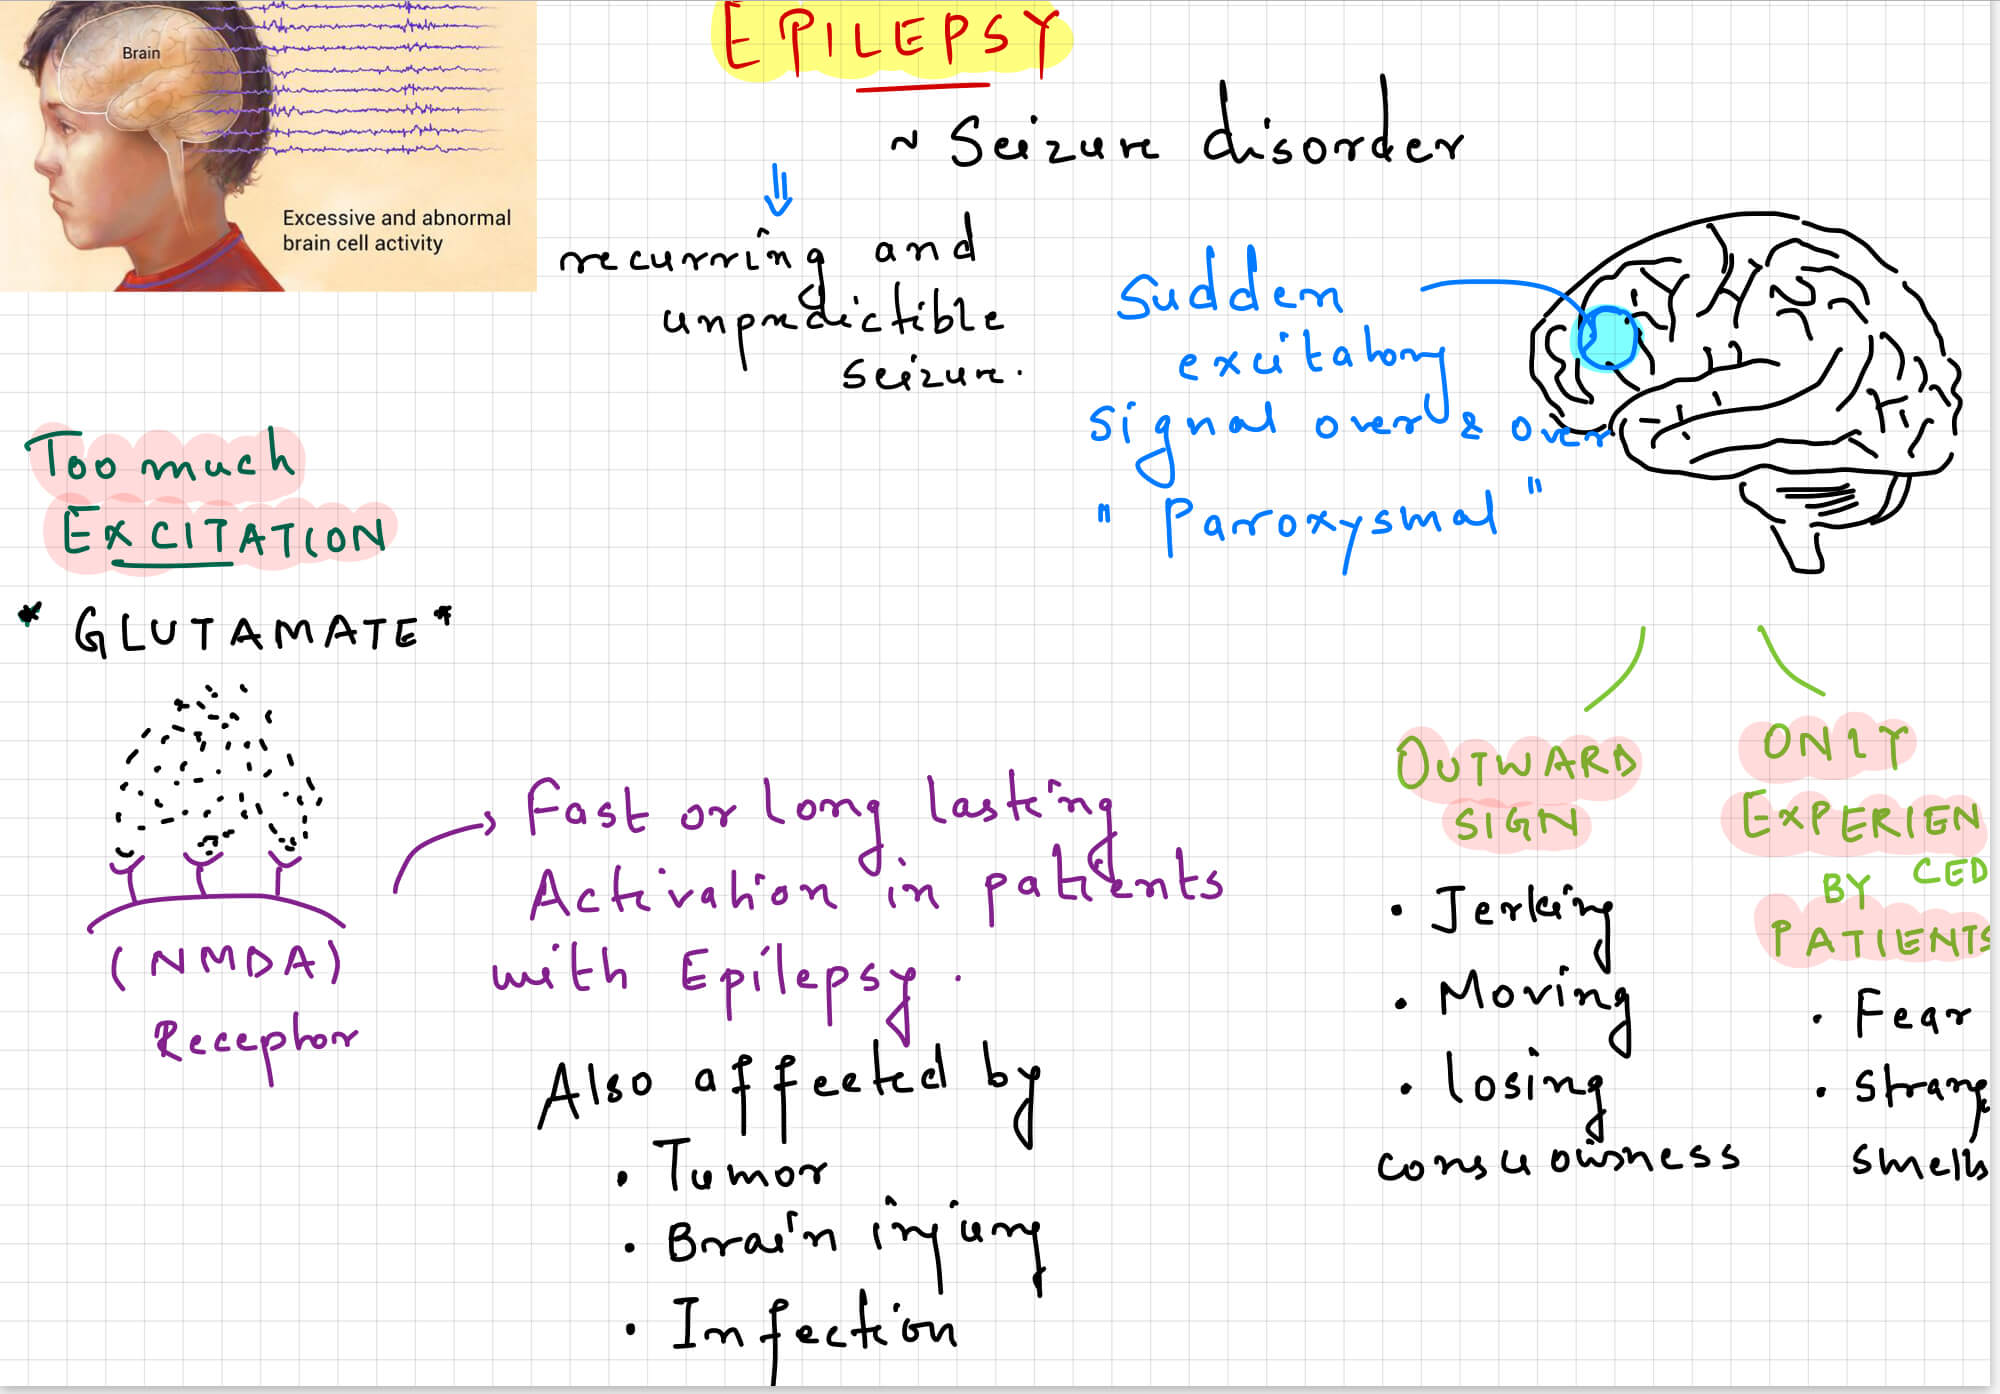 EPILEPSY
~ Seizure disorder
Brain
Excessive and abnormal
brain cell activity
⇓
recurring and
unpredictible
seizure.
Sudden
excitatory
signal over & over
" Paroxysmal "
Too much
EXCITATION
* GLUTAMATE *
(NMDA)
Receptor
→ Fast or long lasting
Activation in patients
with Epilepsy.
Also affected by
• Tumor
• Brain injury
• Infection
OUTWARD
SIGN
• Jerking
• Moving
• losing
consciousness
ONLY
EXPERIEN
CED
BY
PATIENTS
• Fear
• Strange
smells